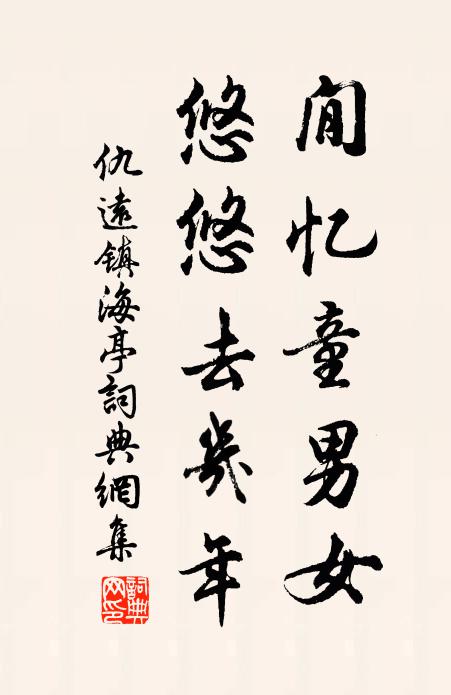 闲忆童男女
悠悠去几年
仇远镇海亭词典網集
詞典网印